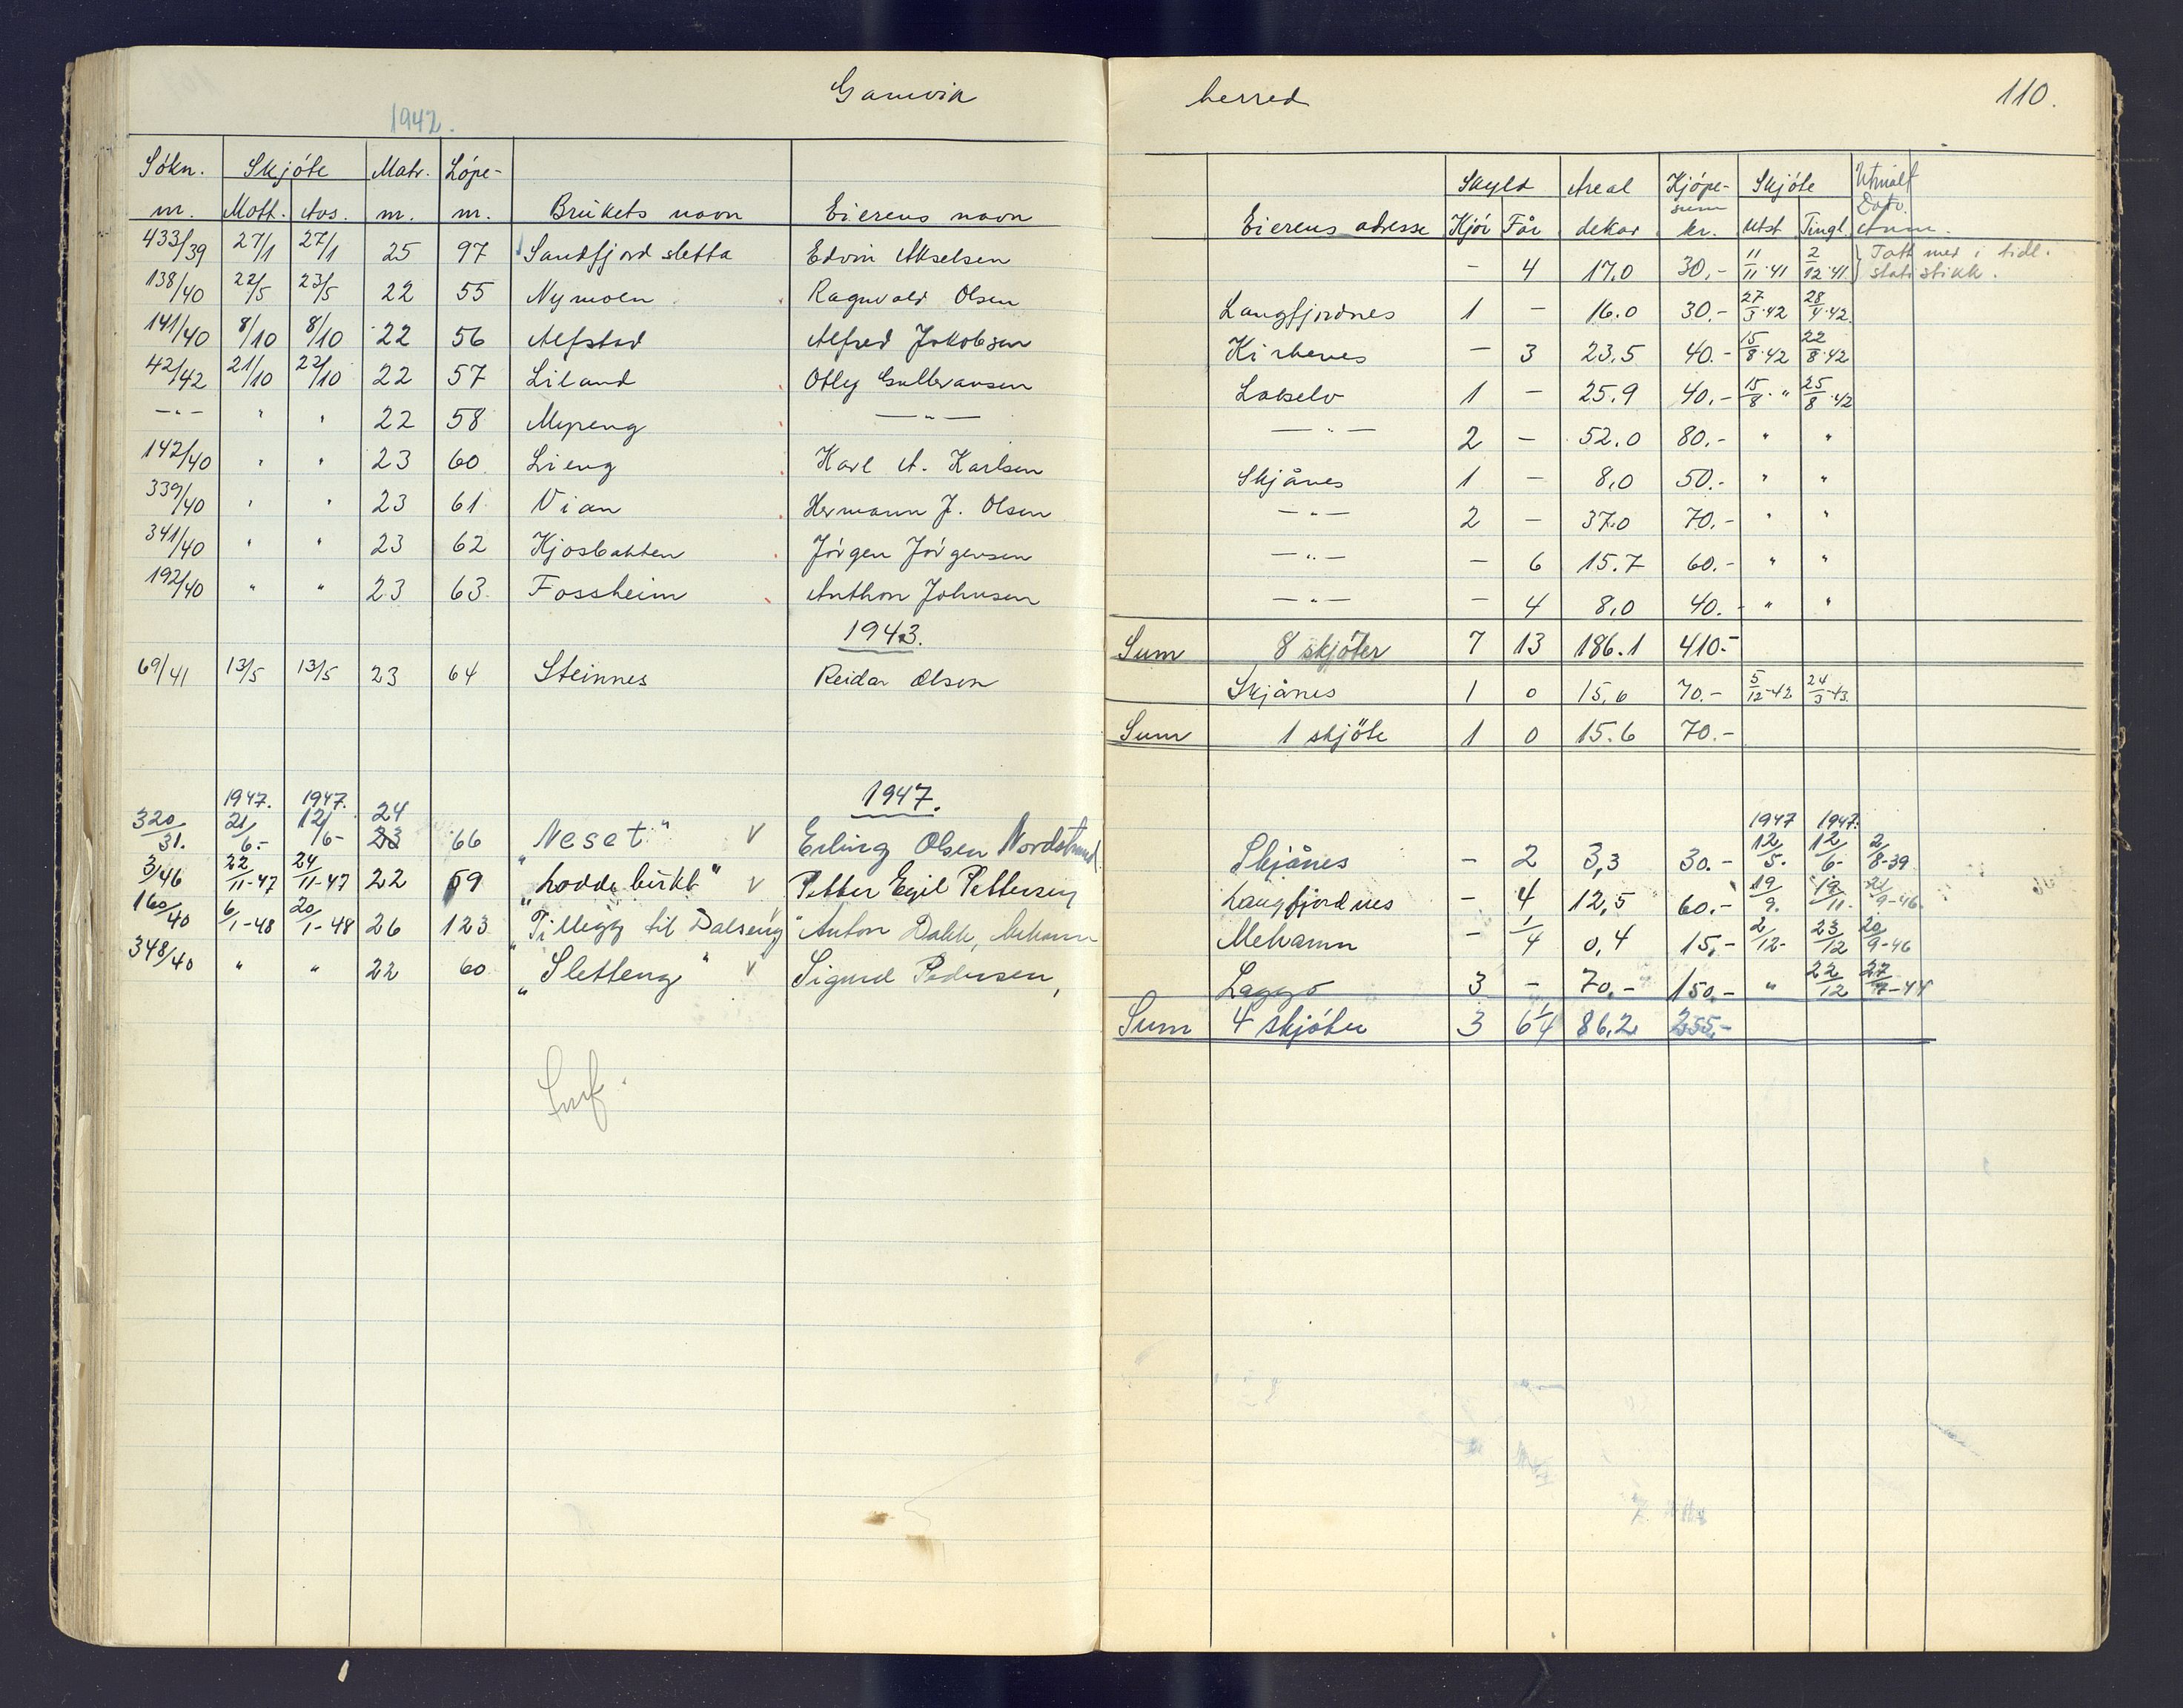 Gamvik herred 110.
1942.
Søkn. Skjøte Matr. Løpe- Skyld Areal Kjøpe- Skjøte Utmålt
nr. Mott. Avs. nr. nr. Brukets navn Eierens navn Eierens adresse Kjør Får dekar sum kr. Utst Tingl. Dato. Anm.
433/39 27/1 27/1 25 97 Sandfjordsletta Edvin Akselsen - 4 17,0 30,- 11/11-41 2/12-41 } Tatt med i tidl. statistikk.
138/40 22/5 23/5 22 55 Nymoen Ragnvald Olsen Langfjordnes 1 - 16.0 30.- 27/3-42 28/4-42.
141/40 8/10 8/10 22 56 Alfstad Alfred Jakobsen Kirkenes - 3 23,5 40.- 15/8-42 22/8-42
42/42 21/10 22/10 22 57 Liland Otley Gullvansen Lakselv 1 - 25.9 40,- 15/8-" 25/8-42
-"- " " 22 58 Myreng -"- -"- 2 - 52.0 80.- " "
142/40 " " 23 60 Lieng Karl A. Karlsen Skjånes 1 - 8,0 50.- " "
339/40 " " 23 61 Vian Hermann J. Olsen -"- 2 - 37.0 70.- " "
341/40 " " 23 62 Kjosbakken Jørgen Jørgensen -"- - 6 15.7 60.- " "
192/40 " " 23 63 Fossheim Anthon Johnsen -"- - 4 8,0 40.- " "
Sum 8 skjøter 7 13 186.1 410.-
1943.
69/41 13/5 13/5 23 64 Steinnes Reidar Olsen Skjånes 1 0 15,6 70.- 5/12-42 24/3-43.
Sum 1 skjøte 1 0 15.6 70.-
1947.
1947. 1947. 24 1947 1947.
320/31. 21/6.- 12/6- 23 66 "Neset" v Erling Olsen Nordstrand Skjånes - 2 3,3 30.- 12/5. 12/6- 2/8-39
3/46 22/11-47 24/11-47 22 59 "Loddebukt" v Petter Egil Pettersen Langfjordnes - 4 12,5 60.- 19/9. 19/11. 21/9-46
160/40 6/1-48 20/1-48 26 123 "Tillegg til Dalseng" Anton Dakk, Mehamn Mehamn - 1/4 0,4 15,- 2/12- 23/12 20/9-46
348/40 " " 22 60 "Sletteng" v Sigurd Pedersen, Laggo 3 - 70.- 150.- " 22/12 27/9-44
Sum 4 skjøter 3 6 1/4 86,2 255,-